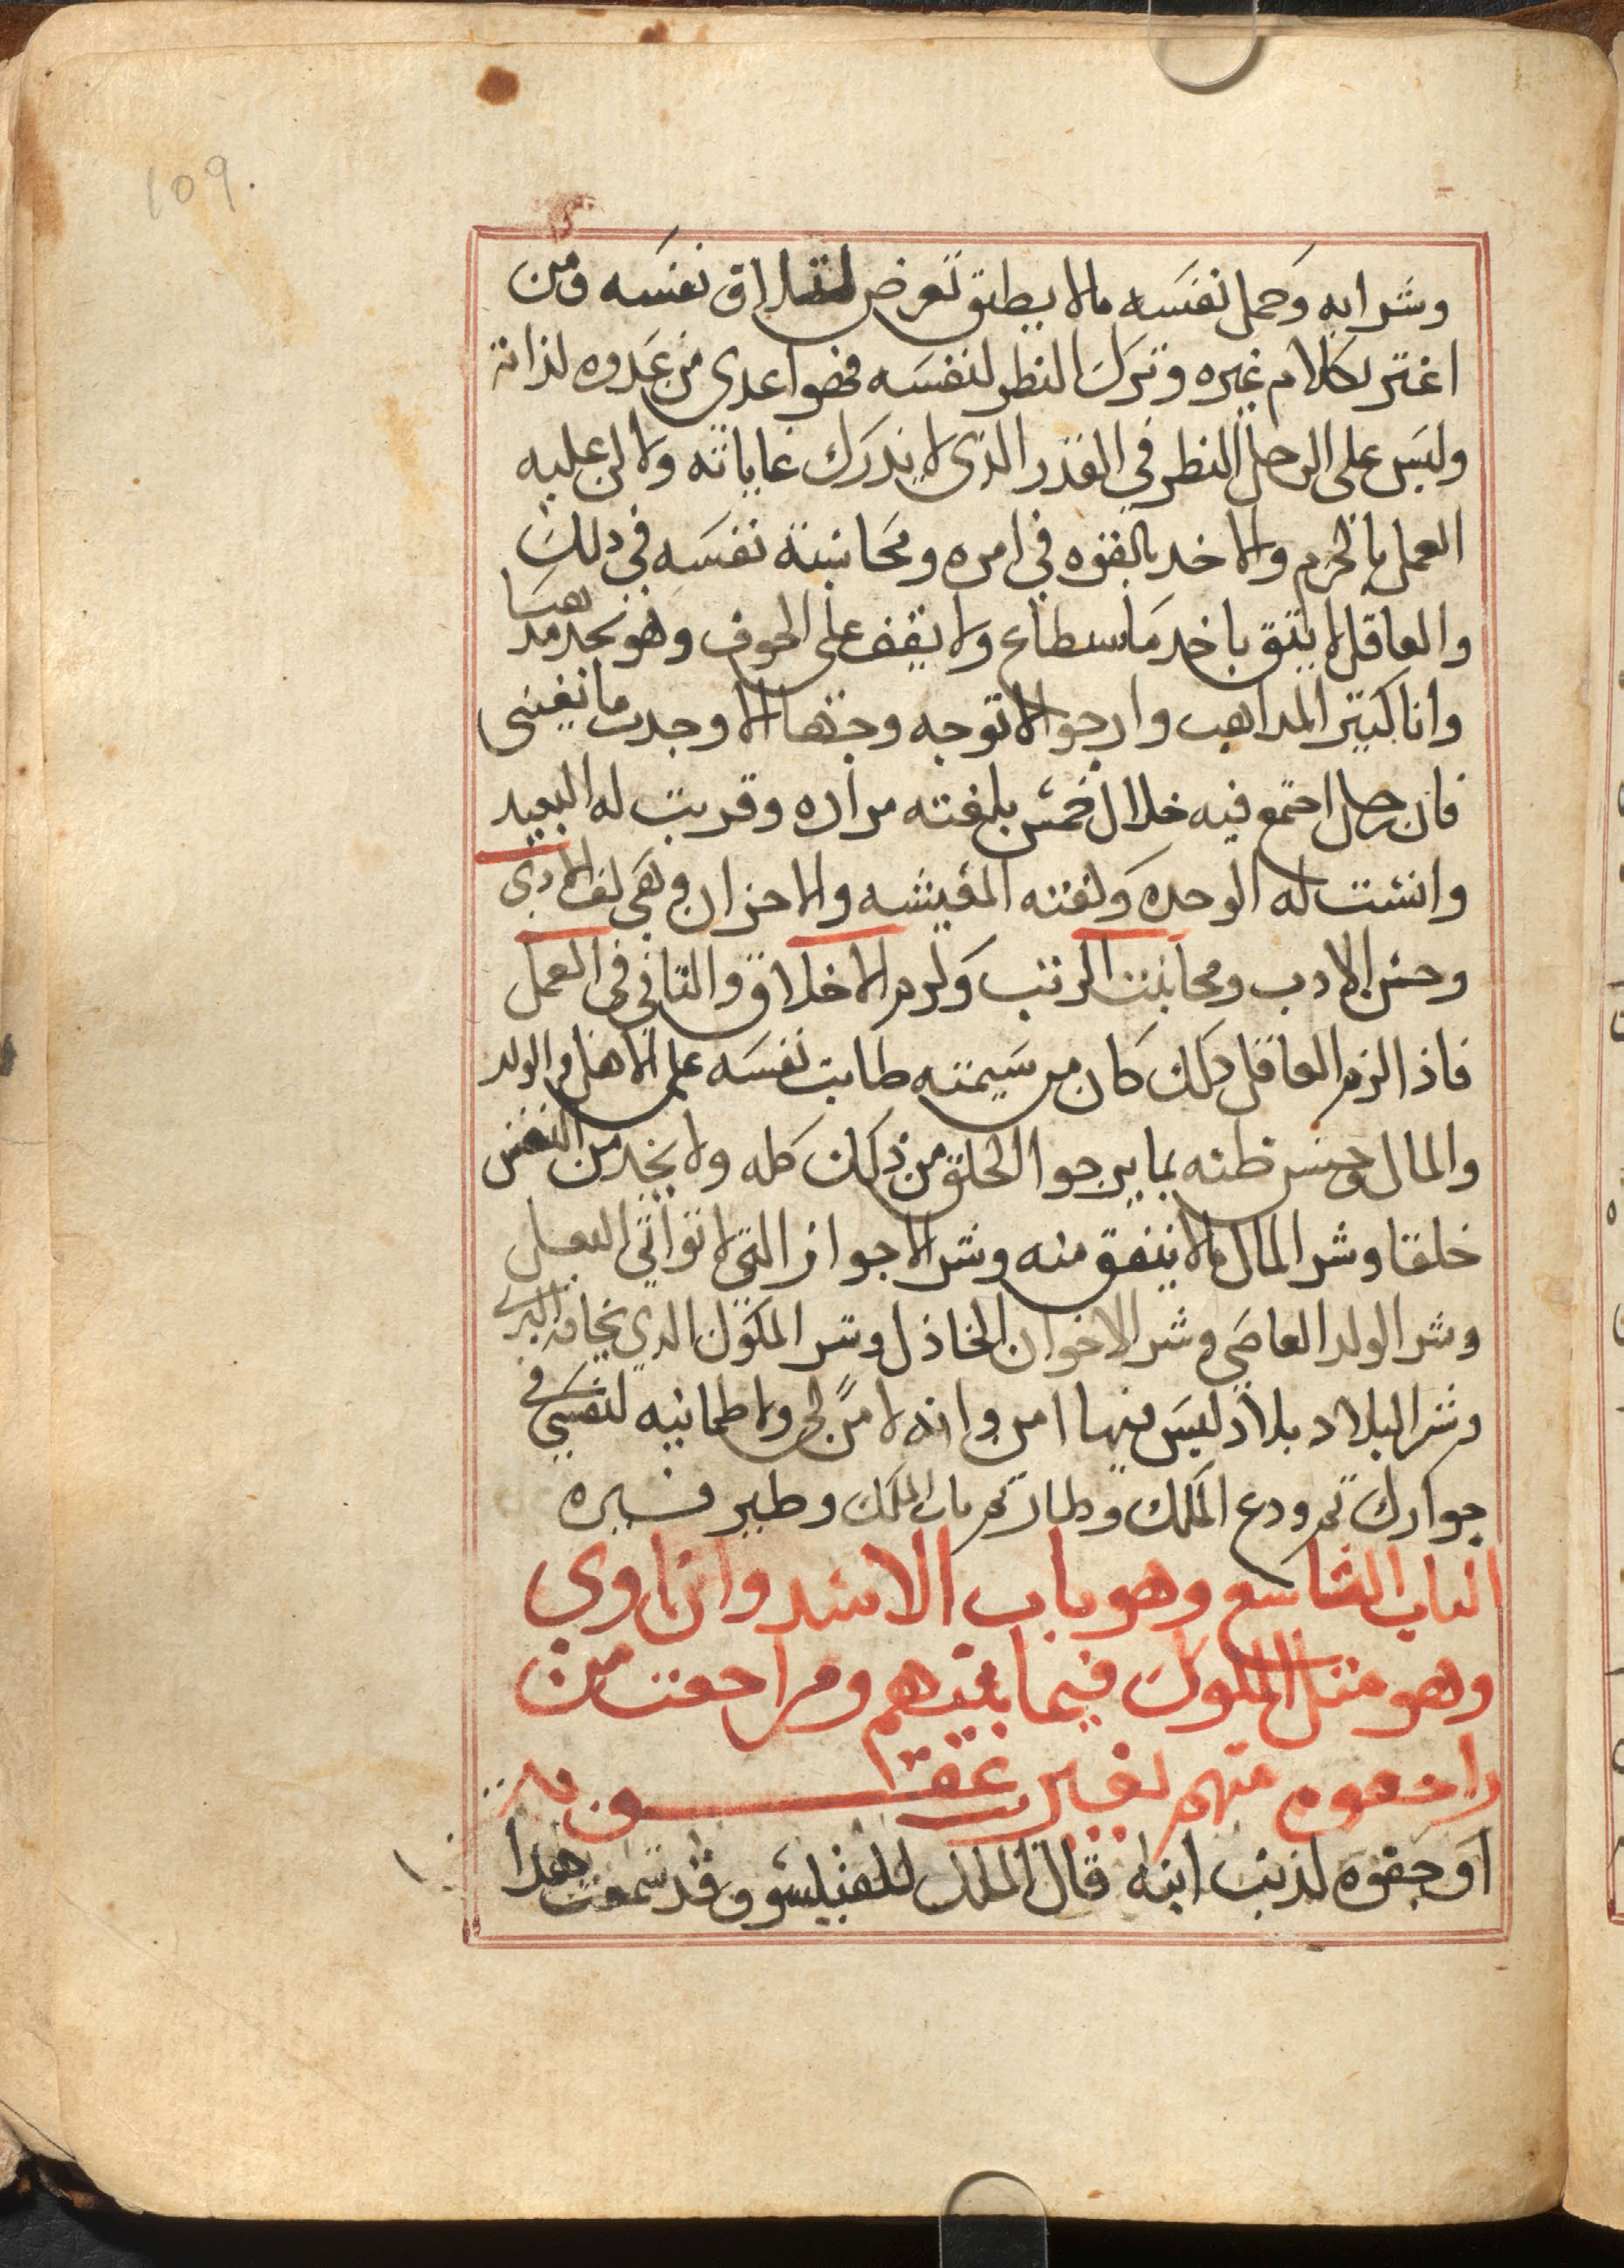 109.
وشرابه وحمل نفسه مالا يطيق تعرض لتلاق نفسه ومن
اغتر بكلام غيره وترك النظر لنفسه فهوا عدى من عدوه لذاته
وليس على الرجل النظر في القدر الذى لا يدرك غاياته ولاكن عليه
العمل بالحزم والاخد بالقوه في امره ومحاسبة نفسه في دلك
والعاقل لا يتق باخد ماسطاع ولا يقف على الخوف وهو يجد مدهبا
وانا كتير المداهب وارجوا الا توجه وجتها الا وجدت ما يغينى
فان رجل اجتمع فيه خلال خمس بلغته مراده وقربت له البعيد
وانست له الوحده ولقته المعيشه والاخوان وهي كف الادى
وحسن الادب ومجانبت الريب وكرم الاخلاق والتاني في العمل
فاذا لزم العاقل دلك كان من سيمته طابت نفسه على الاهل والولد
والمال وحسن ظنه بما يرجوا الخلق من ذلك كله ولا يجد من النفس
خلقا وشر المال مالا ينفق منه وشر الاجواز التي لا تواتي البعل
وشر الولد العاصي وشر الاخوان الخاذل وشر الملوك الدي يخافه البرى
وشر البلاد بلاد ليس فيها امن وانه لا امن لي ولا طمانيه لنفسي في
جوارك تم ودع الملك وطار تم باب الملك وطير فنيره
الباب التاسع وهو باب الاسد وابن اوي
وهو متل الملوك فيما بينهم ومراجعت من
راجعوه منهم بغير عقوبه
او جفوه لذنب اتبه قال الملك للفيلسوف قد سمعت هدا